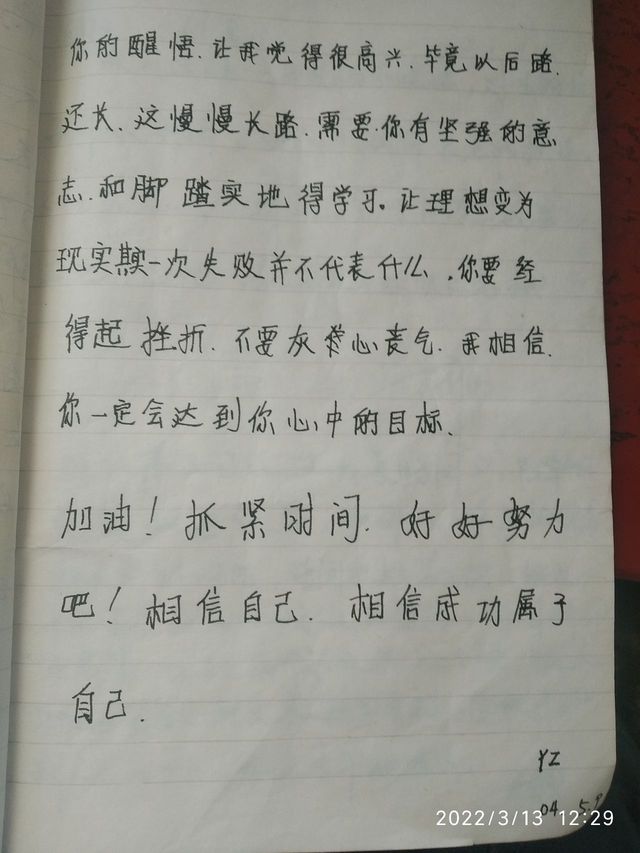 你的醒悟、让我觉得很高兴、毕竟以后路、
还长、这慢慢长路、需要你有坚强的意
志、和脚踏实地得学习。让理想变为
现实其实一次失败并不代表什么、你要经
得起挫折、不要灰心丧气、我相信、
你一定会达到你心中的目标、
加油！抓紧时间、好好努力
吧！相信自己、相信成功属于
自己、
YZ
04 5.9
2022/3/13 12:29